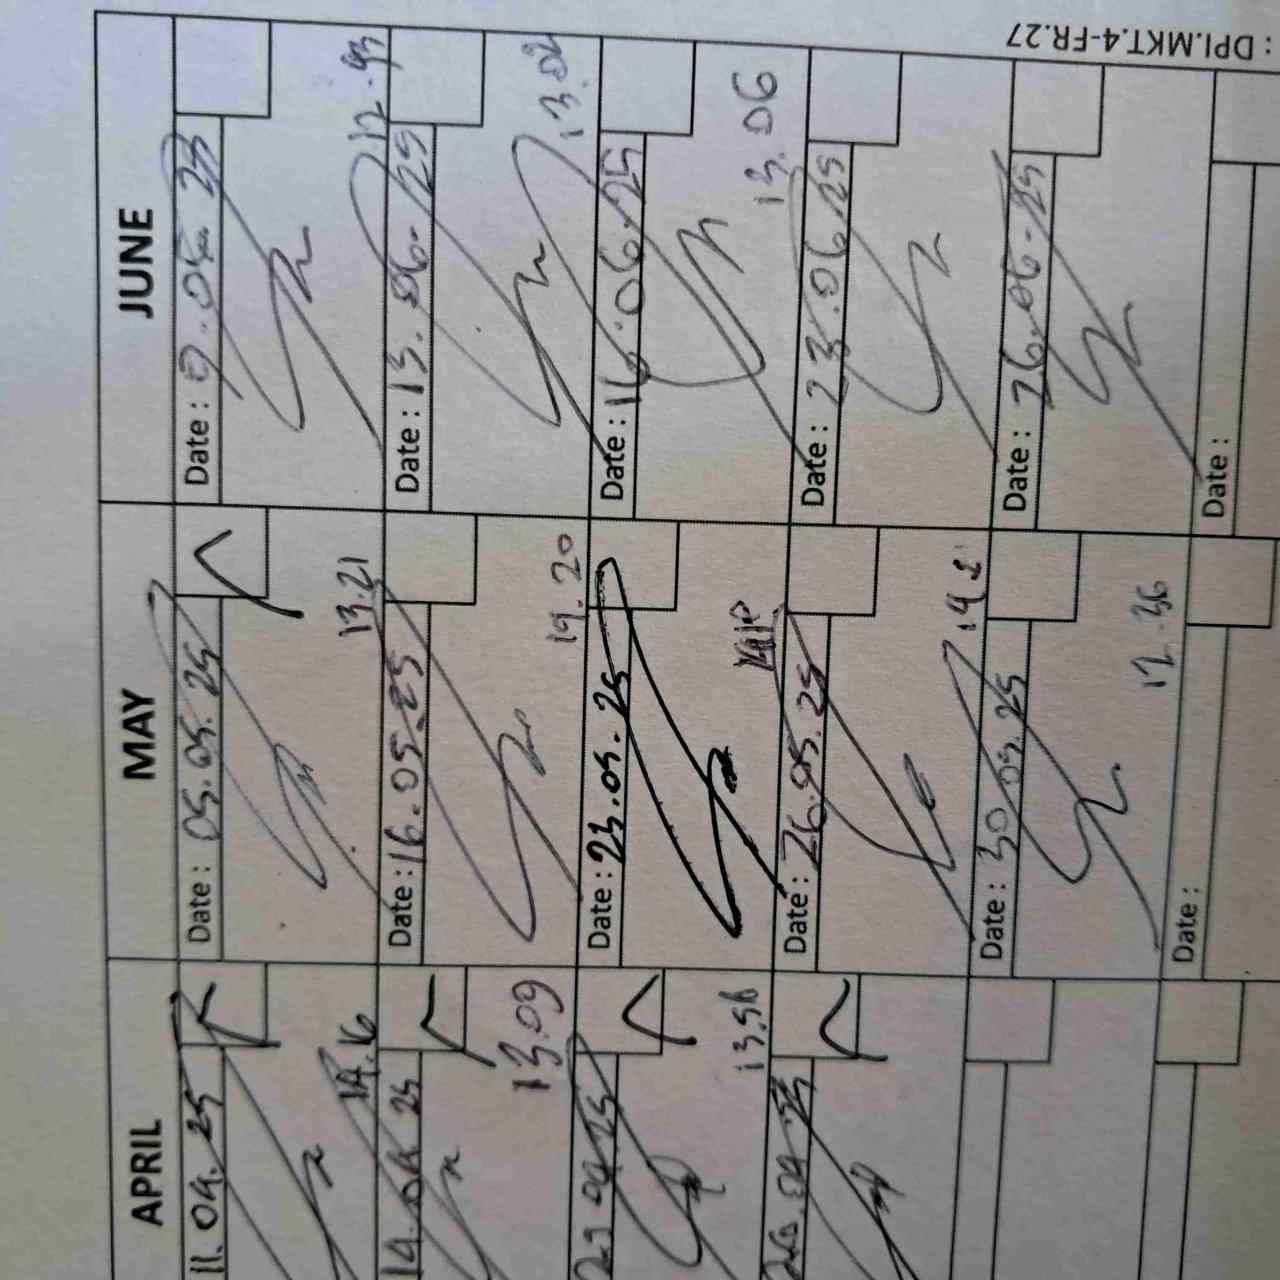 : DPI.MKT.4-FR.27
APRIL
11.04.25
14.16
14.04.25
13.09
13.56
MAY
Date : 05.05.25
13.21
Date : 16.05.25
19.20
Date : 23.05.25
Date : 26.05.25
Date : 30.05.25
12.36
Date :
JUNE
Date :
Date : 13.06.25
13.02
Date : 16.06.25
13.06
Date : 23.06.25
Date : 26.06.25
Date :